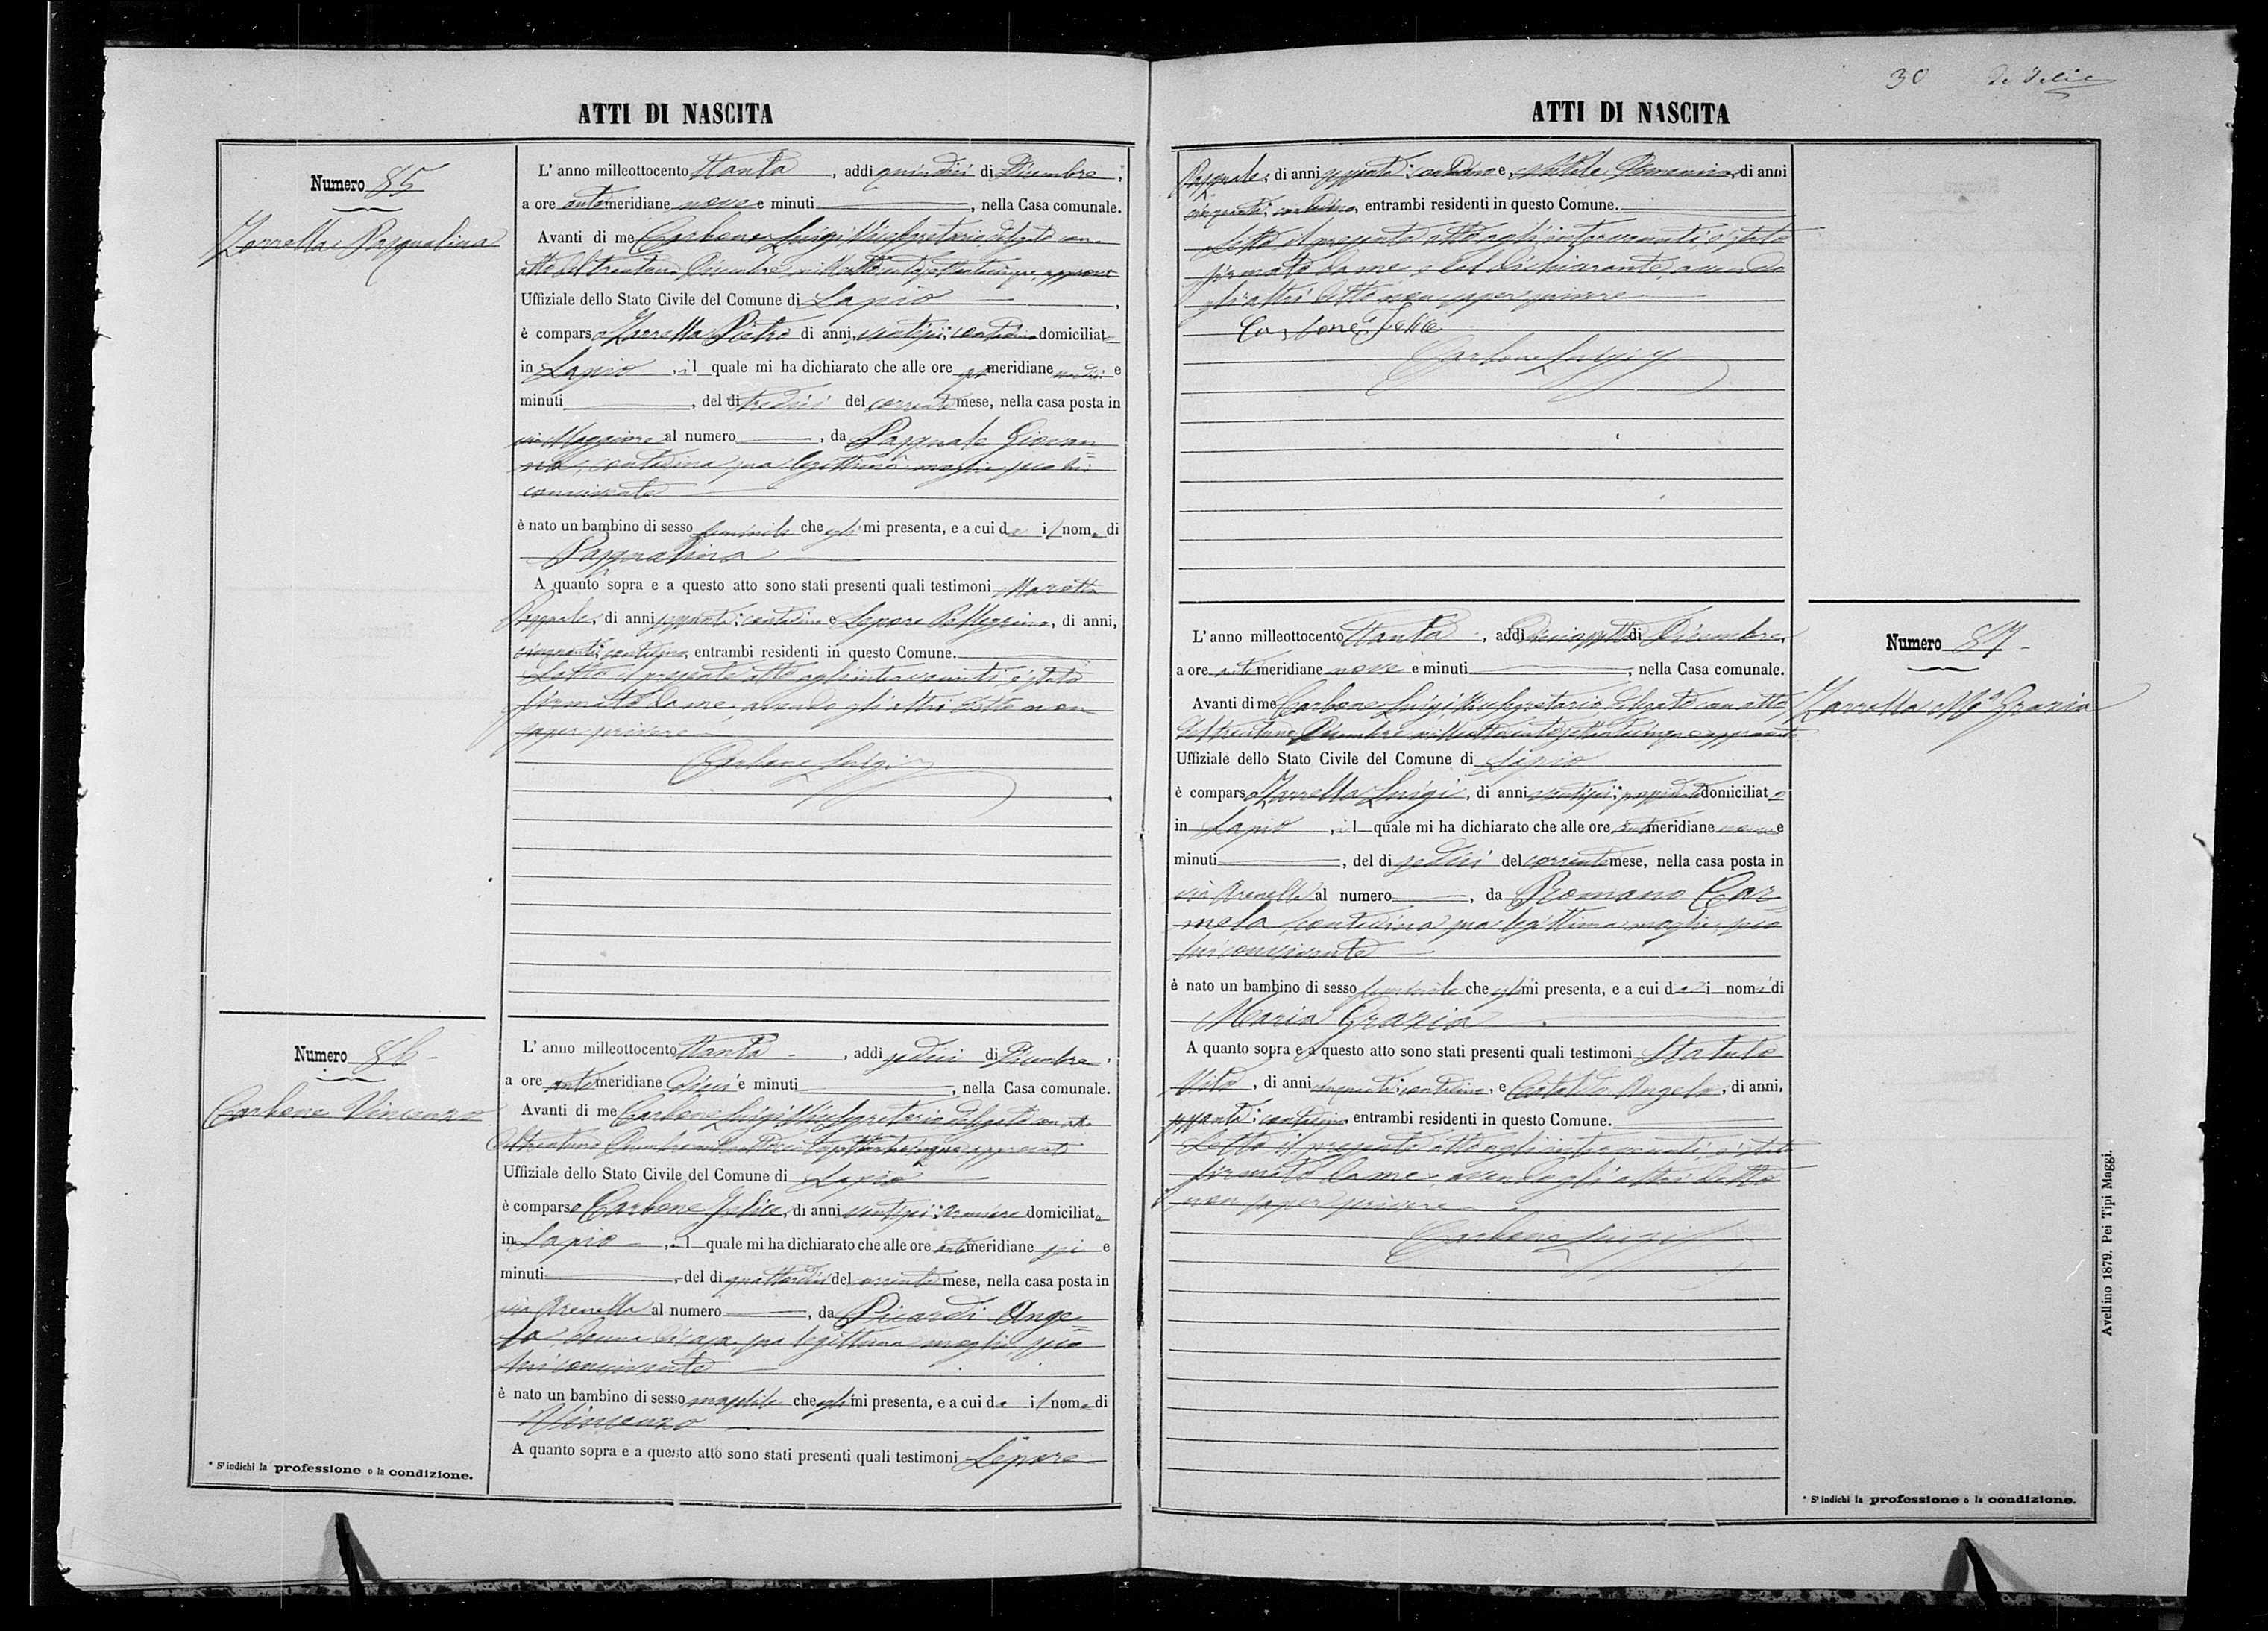 ATTI DI NASCITA
Numero 85
Zarrella Pasqualina
L' anno milleottocento ottanta, addi quindici di Dicembre,
a ore antimeridiane nove e minuti, nella Casa comunale.
Avanti di me Carbone Luigi Vicesegretario delegato con
atto del trentuno Dicembre milleottocentosettantacinque, approvato
Uffiziale dello Stato Civile del Comune di Lapio
è comparso Zarrella Pietro di anni ventisei; contadino domiciliato
in Lapio, il quale mi ha dichiarato che alle ore pomeridiane undici e
minuti, del di tredici del corrente mese, nella casa posta in
via Maggiore al numero, da Pasquale Giovan=
na, contadina, sua legittima moglie, seco lui
convivente
è nato un bambino di sesso femminile che egli mi presenta, e a cui da il nome di
Pasqualina
A quanto sopra e a questo atto sono stati presenti quali testimoni Marotta
Pasquale, di anni sessanta; contadino e Lepore Pellegrino, di anni,
cinquanta; contadino, entrambi residenti in questo Comune.
Letto il presente atto agli intervenuti, è stato
firmato da me, avendo gli altri detto non
saper scrivere
Carbone Luigi
Numero 86
Carbone Vincenzo
L' anno milleottocento ottanta, addi sedici di Dicembre,
a ore antimeridiane dieci e minuti, nella Casa comunale.
Avanti di me Carbone Luigi Vicesegretario delegato con atto
del trentuno Dicembre milleottocentosettantacinque, approvato
Uffiziale dello Stato Civile del Comune di Lapio
è comparso Carbone Felice, di anni ventisei; domiciliato
in Lapio, il quale mi ha dichiarato che alle ore antimeridiane sei e
minuti, del di quattordici del corrente mese, nella casa posta in
via Arenella al numero, da Picardi Ange=
la, donna di casa, sua legittima moglie, seco
lui convivente
è nato un bambino di sesso maschile che egli mi presenta, e a cui da il nome di
Vincenzo
A quanto sopra e a questo atto sono stati presenti quali testimoni Lepore
* S'indichi la professione o la condizione.
30
ATTI DI NASCITA
Pasquale, di anni sessanta; contadino e, di anni
cinquanta; contadino, entrambi residenti in questo Comune.
Letto il presente atto agli intervenuti, è stato
firmato da me, e dal dichiarante, avendo
gli altri detto non saper scrivere
Carbone Felice
Carbone Luigi
Numero 87
Zarrella Ma Grazia
L' anno milleottocento ottanta, addi diciassette di Dicembre,
a ore antimeridiane nove e minuti, nella Casa comunale.
Avanti di me Carbone Luigi, Vicesegretario delegato con atto
del trentuno Dicembre milleottocentosettantacinque approvato
Uffiziale dello Stato Civile del Comune di Lapio
è comparso Zarrella Luigi, di anni ventisei; domiciliato
in Lapio, il quale mi ha dichiarato che alle ore antimeridiane nove e
minuti, del di sedici del corrente mese, nella casa posta in
via Arenella al numero, da Romano Car=
mela, contadina, sua legittima moglie, seco
lui convivente
è nato un bambino di sesso femminile che egli mi presenta, e a cui da i nomi di
Maria Grazia
A quanto sopra e a questo atto sono stati presenti quali testimoni Statuto
Vito, di anni cinquanta; contadino, e Cataldo Angelo, di anni,
sessanta; contadino, entrambi residenti in questo Comune.
Letto il presente atto agli intervenuti, è stato
firmato da me, avendo gli altri detto
non saper scrivere
Carbone Luigi
* S'indichi la professione o la condizione.
Avellino 1879. Pei Tipi Maggi.